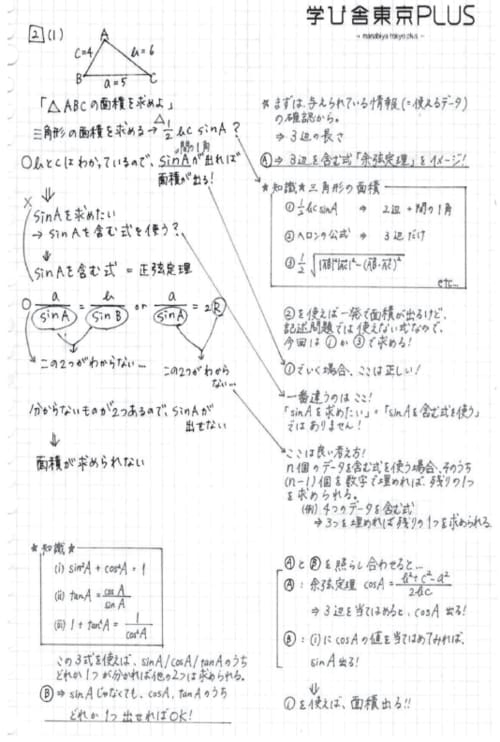 学び舎東京PLUS
- manabiya tokyo plus -
2 (1)
A
c=4
b=6
B
a=5
C
「△ABCの面積を求めよ」
三角形の面積を求める→△ 1/2 bc sinA?
○bとcはわかっているので、sinAが出れば
間の1角
面積が出る!
⇓
×
sinAを求めたい
→ sinAを含む式を使う?
⇓
sinAを含む式 = 正弦定理
○ a/sinA = b/sinB or a/sinA = 2R
→ この2つがわからない…
この2つがわから
ない…
分からないものが2つあるので、sinAが
出せない
⇓
面積が求められない
☆知識☆
(i) sin²A + cos²A = 1
(ii) tanA = cosA/sinA
(iii) 1 + tan²A = 1/cos²A
この3式を使えば、sinA/cosA/tanAのうち
どれか1つが分かれば他の2つは求められる。
Ⓑ ⇒ sinAじゃなくても、cosA, tanAのうち
どれか1つ出せればOK!
☆まずは、与えられている情報(=使えるデータ)
の確認から。
⇒ 3辺の長さ
Ⓐ ⇒ 3辺を含む式「余弦定理」をイメージ!
☆知識☆三角形の面積
① 1/2 bc sinA ⇒ 2辺+間の1角
② ヘロンの公式 ⇒ 3辺だけ
③ 1/2 √|AB|²|AC|²-(AB・AC)²
etc…
②を使えば一発で面積が出るけど、
記述問題では使えない式なので、
今回は①か③で求める!
①でいく場合、ここは正しい!
一番違うのはここ!
「sinAを求めたい」=「sinAを含む式を使う」
ではありません!
ここは良い考え方!
n個のデータを含む式を使う場合、そのうち
(n-1)個を数字で埋めれば、残りの1つ
を求められる。
(例) 4つのデータを含む式
⇒ 3つを埋めれば残りの1つを求められる
ⒶとⒷを照らし合わせると…
Ⓐ: 余弦定理 cosA = b²+c²-a²/2bc
⇒ 3辺を当てはめると、cosA出る!
Ⓑ: (i)にcosAの値を当てはめてみれば、
sinA出る!
⇓
①を使えば、面積出る!!